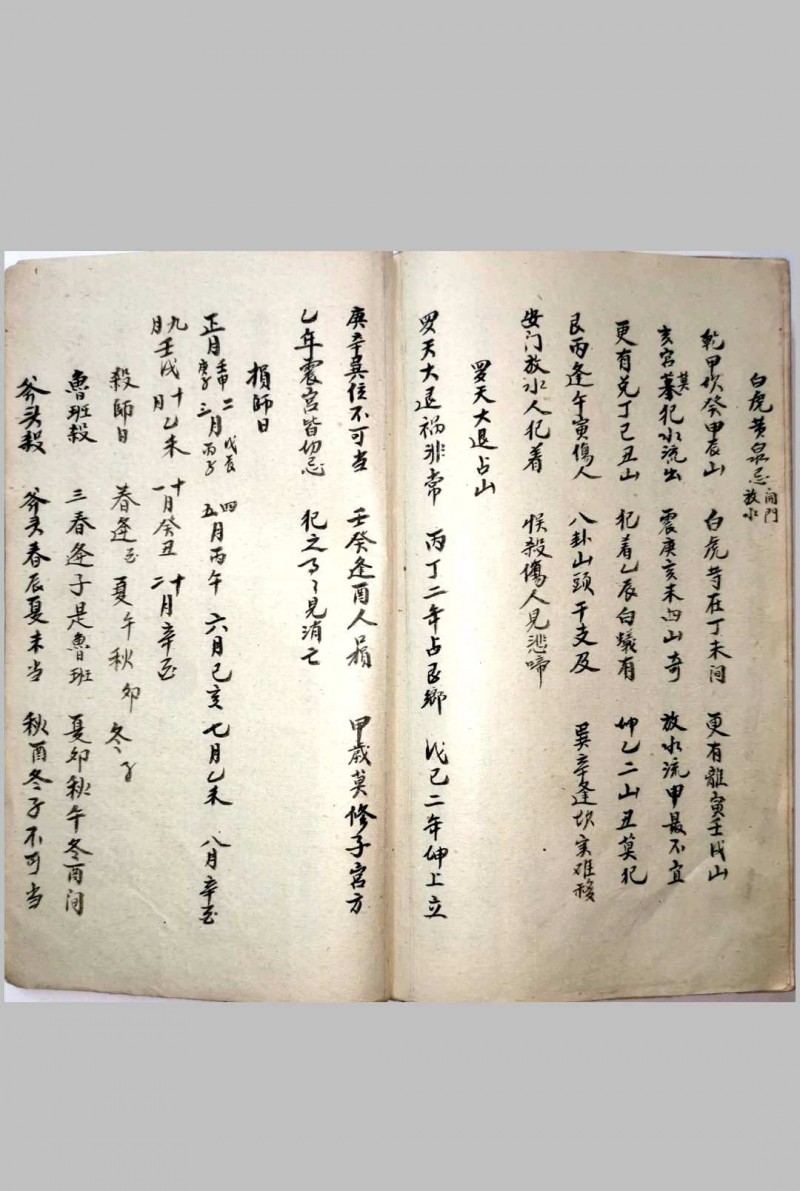 白虎黄泉忌開門放水
乾甲坎癸申辰山 白虎苛在丁未间 更有離寅壬戌山
亥宫莫墓犯水流出 震庚亥未四山奇 放水流甲最不宜
更有兑丁己丑山 犯着乙辰白蟻有 坤乙二山丑莫犯
艮丙逢午寅傷人 八卦山頭干支及 巽辛逢坎实难移
安门放水人犯着 悮殺傷人見悲啼
罗天大退占山
罗天大退祸非常 丙丁二年占艮鄉 戊己二年坤上立
庚辛巽位不可当 壬癸逢酉人損 甲歲莫修子宫方
乙年震宫皆切忌 犯之了了見消亡
損師日
正月壬申庚子 二月戊辰 三月丙子 四五月丙午 六月己亥 七月乙未 八月辛亥
九月壬戌 十月乙未 十一月癸丑 十二月辛亥
殺師日 春逢亥 夏午 秋卯 冬子
魯班殺 三春逢子是魯班 夏卯秋午冬酉间
斧头殺 斧头春辰夏未当 秋酉冬子不可当